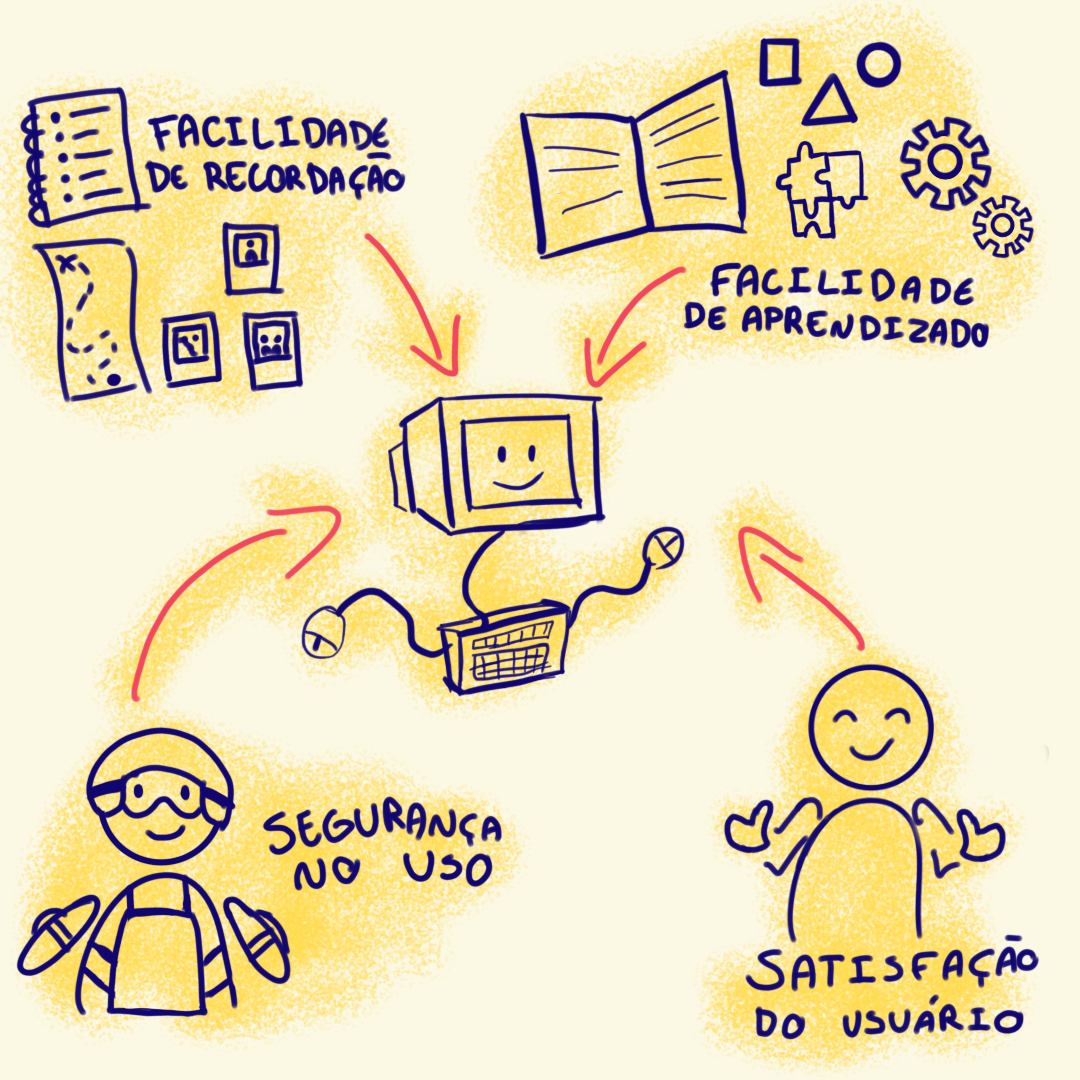 FACILIDADE
DE RECORDAÇÃO
FACILIDADE
DE APRENDIZADO
SEGURANÇA
NO USO
SATISFAÇÃO
DO USUÁRIO